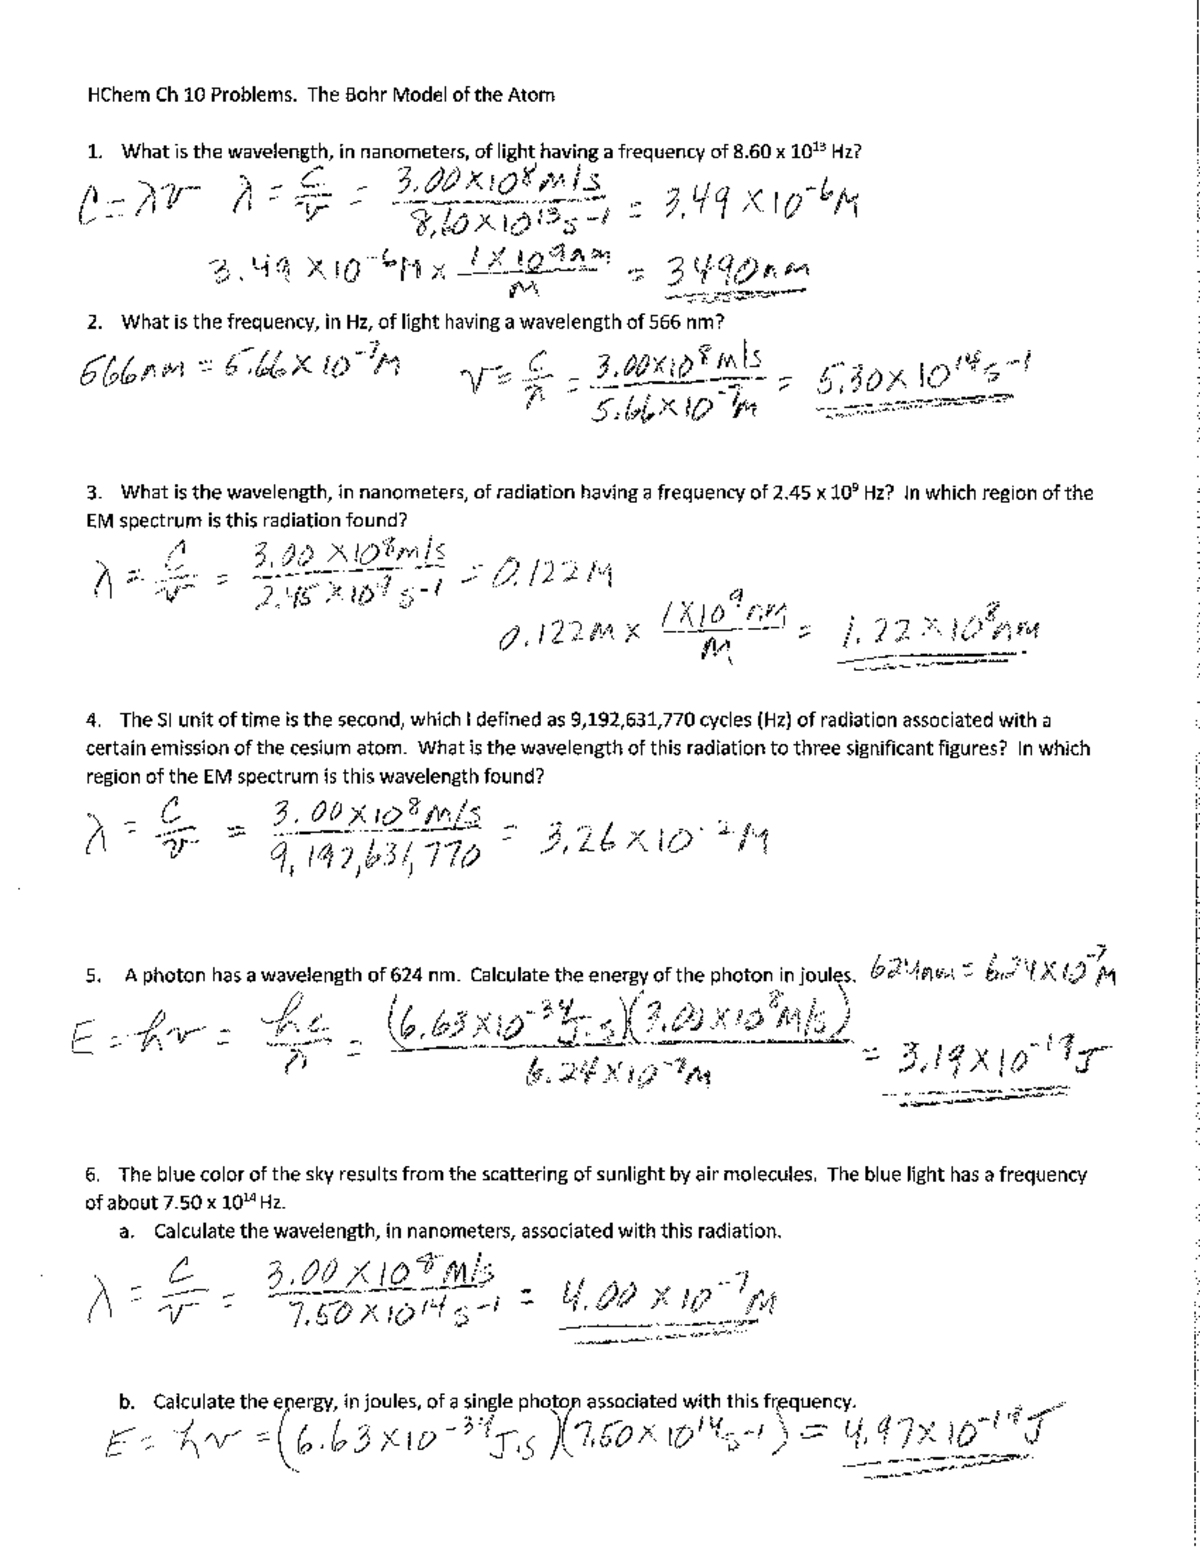 HChem Ch 10 Problems. The Bohr Model of the Atom
1. What is the wavelength, in nanometers, of light having a frequency of 8.60 x 10¹³ Hz?
C=λν λ = C/ν = 3.00×10⁸m/s / 8.60×10¹³s⁻¹ = 3.49 ×10⁻⁶M
3.49 ×10⁻⁶M × 1×10⁹nm / M = 3490nm
2. What is the frequency, in Hz, of light having a wavelength of 566 nm?
566nm = 5.66×10⁻⁷M ν = C/λ = 3.00×10⁸m/s / 5.66×10⁻⁷m = 5.30×10¹⁴s⁻¹
3. What is the wavelength, in nanometers, of radiation having a frequency of 2.45 x 10⁹ Hz? In which region of the
EM spectrum is this radiation found?
λ = C/ν = 3.00 ×10⁸m/s / 2.45×10⁹ s⁻¹ = 0.122M
0.122M × 1×10⁹nm / M = 1.22×10⁸nm
4. The SI unit of time is the second, which I defined as 9,192,631,770 cycles (Hz) of radiation associated with a
certain emission of the cesium atom. What is the wavelength of this radiation to three significant figures? In which
region of the EM spectrum is this wavelength found?
λ = C/ν = 3.00×10⁸M/s / 9,192,631,770 = 3.26×10⁻²M
5. A photon has a wavelength of 624 nm. Calculate the energy of the photon in joules. 624nm = 6.24×10⁻⁷M
E = hν = hc/λ = (6.63×10⁻³⁴J·s)(3.00×10⁸M/s) / 6.24×10⁻⁷M = 3.19×10⁻¹⁹J
6. The blue color of the sky results from the scattering of sunlight by air molecules. The blue light has a frequency
of about 7.50 x 10¹⁴ Hz.
a. Calculate the wavelength, in nanometers, associated with this radiation.
λ = C/ν = 3.00×10⁸M/s / 7.50×10¹⁴s⁻¹ = 4.00 ×10⁻⁷M
b. Calculate the energy, in joules, of a single photon associated with this frequency.
E = hν = (6.63×10⁻³⁴J·s)(7.50×10¹⁴s⁻¹) = 4.97×10⁻¹⁹J